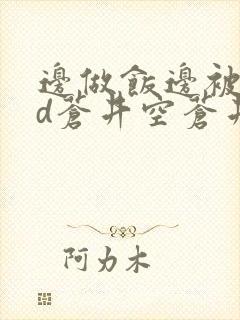 邊做飯邊被
d蒼井空蒼井
阿力木